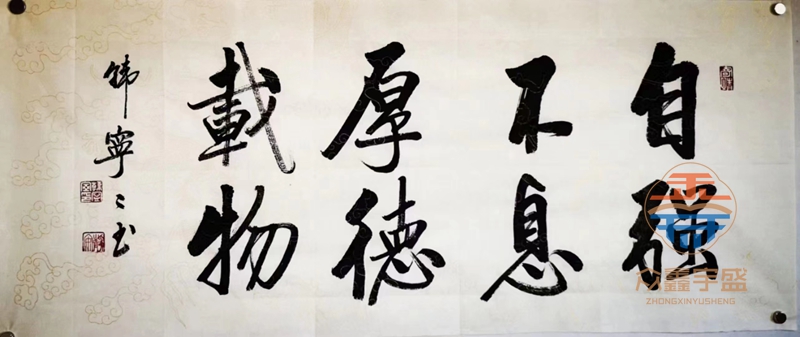 自强
不息
厚德
載物
韩寧寧书
众鑫宇盛
ZHONGXINYUSHENG